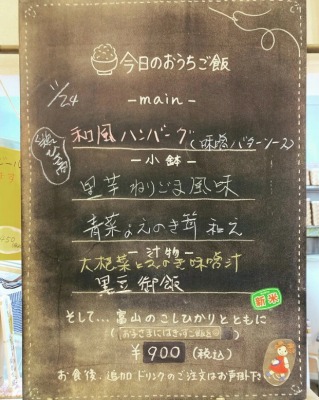 今日のおうちご飯
11/24
-main-
和風ハンバーグ(味噌バターソース)
-小鉢-
里芋ねりごま風味
青菜とえのき茸 和え
-汁物-
大根菜とえのき味噌汁
黒豆御飯
新米
そして... 富山のこしひかりとともに
¥900(税込)
お食後、追加ドリンクのご注文はお声掛け下さい